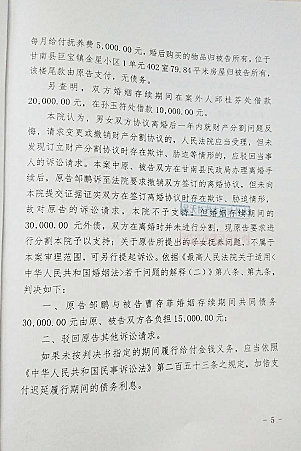 每月给付抚养费5,000.00元，婚后购买的物品归被告所有，位于
甘南县巨宝镇金星小区1单元402室79.84平米房屋归被告所有，
该楼尾款由原告支付，无债务。
另查明，双方婚姻存续期间在案外人邱杜芬处借款
20,000.00元，在孙玉符处借款10,000.00元。
本院认为，男女双方协议离婚后一年内就财产分割问题反
悔，请求变更或撤销财产分割协议的，人民法院应当受理，但未
发现订立财产分割协议时存在欺诈、胁迫等情形的，应驳回当事
人的诉讼请求。本案中原、被告双方在甘南县民政局办理离婚手
续后，原告邹鹏诉至法院要求撤销双方签订的离婚协议，但未向
本院提交证据证实双方在签订离婚协议时存在欺诈、胁迫情形，
故对原告的诉讼请求，本院不予支持。但婚姻存续期间的
30,000.00元外债，双方在离婚时并未进行分割，现原告要求进
行分割本院予以支持；关于原告所提出的子女抚养问题，不属于
本案审理范围，可另行提起诉讼。依据《最高人民法院关于适用〈
中华人民共和国婚姻法〉若干问题的解释（二）》第八条、第九条，
判决如下：
一、原告邹鹏与被告曹存菲婚姻存续期间共同债务
30,000.00元由原、被告双方各负担15,000.00元；
二、驳回原告其他诉讼请求。
如果未按判决书指定的期间履行给付金钱义务，应当依照
《中华人民共和国民事诉讼法》第二百五十三条之规定，加倍支
付迟延履行期间的债务利息。
- 5 -